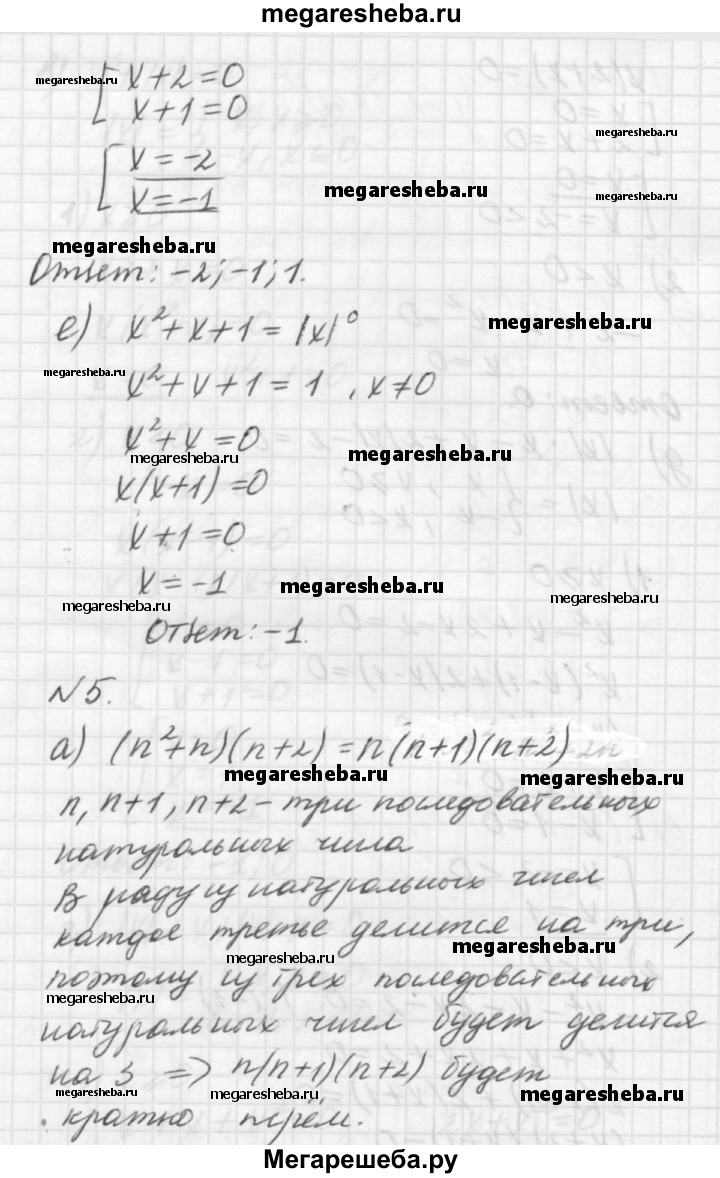 megaresheba.ru
megaresheba.ru
[x+2=0
x+1=0
megaresheba.ru
[x=-2
x=-1
megaresheba.ru
megaresheba.ru
megaresheba.ru
Ответ: -2; -1; 1.
е) x²+x+1=|x|⁰
megaresheba.ru
megaresheba.ru
x²+x+1=1, x≠0
x²+x=0
megaresheba.ru
megaresheba.ru
x(x+1)=0
x+1=0
x=-1
megaresheba.ru
megaresheba.ru
megaresheba.ru
Ответ: -1.
№5.
а) (n²+n)(n+2)=n(n+1)(n+2)
megaresheba.ru
megaresheba.ru
n, n+1, n+2 - три последовательных
натуральных числа
В ряду из натуральных чисел
каждое третье делится на три,
megaresheba.ru
megaresheba.ru
поэтому из трех последовательных
megaresheba.ru
натуральных чисел будет делится
на 3 => n(n+1)(n+2) будет
megaresheba.ru
megaresheba.ru
megaresheba.ru
кратно
Мегарешеба.ру